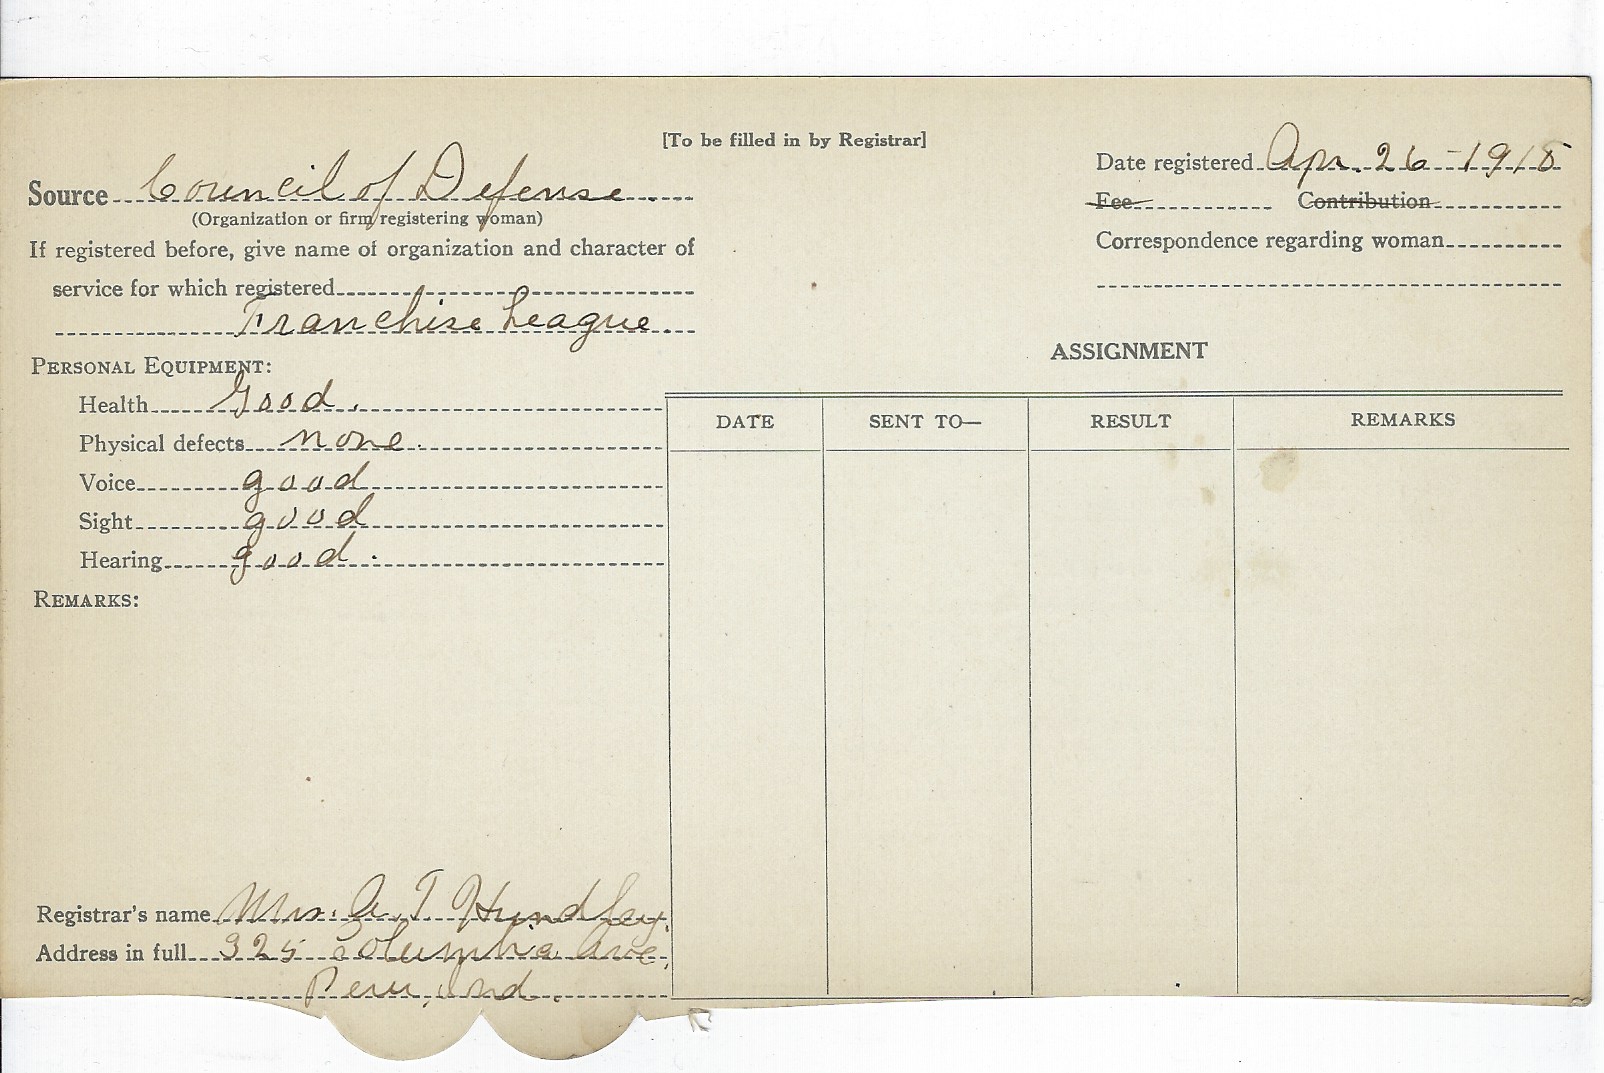 [To be filled in by Registrar]
Source Council of Defense
(Organization or firm registering woman)
If registered before, give name of organization and character of
service for which registered
Franchise League
Date registered Apr. 26 - 1918
Fee Contribution
Correspondence regarding woman
PERSONAL EQUIPMENT:
Health Good.
Physical defects none.
Voice good
Sight good
Hearing good.
REMARKS:
ASSIGNMENT
DATE SENT TO— RESULT REMARKS
Registrar's name Mrs. A. T Hundley.
Address in full 325 Columbia Ave,
Peru, Ind.